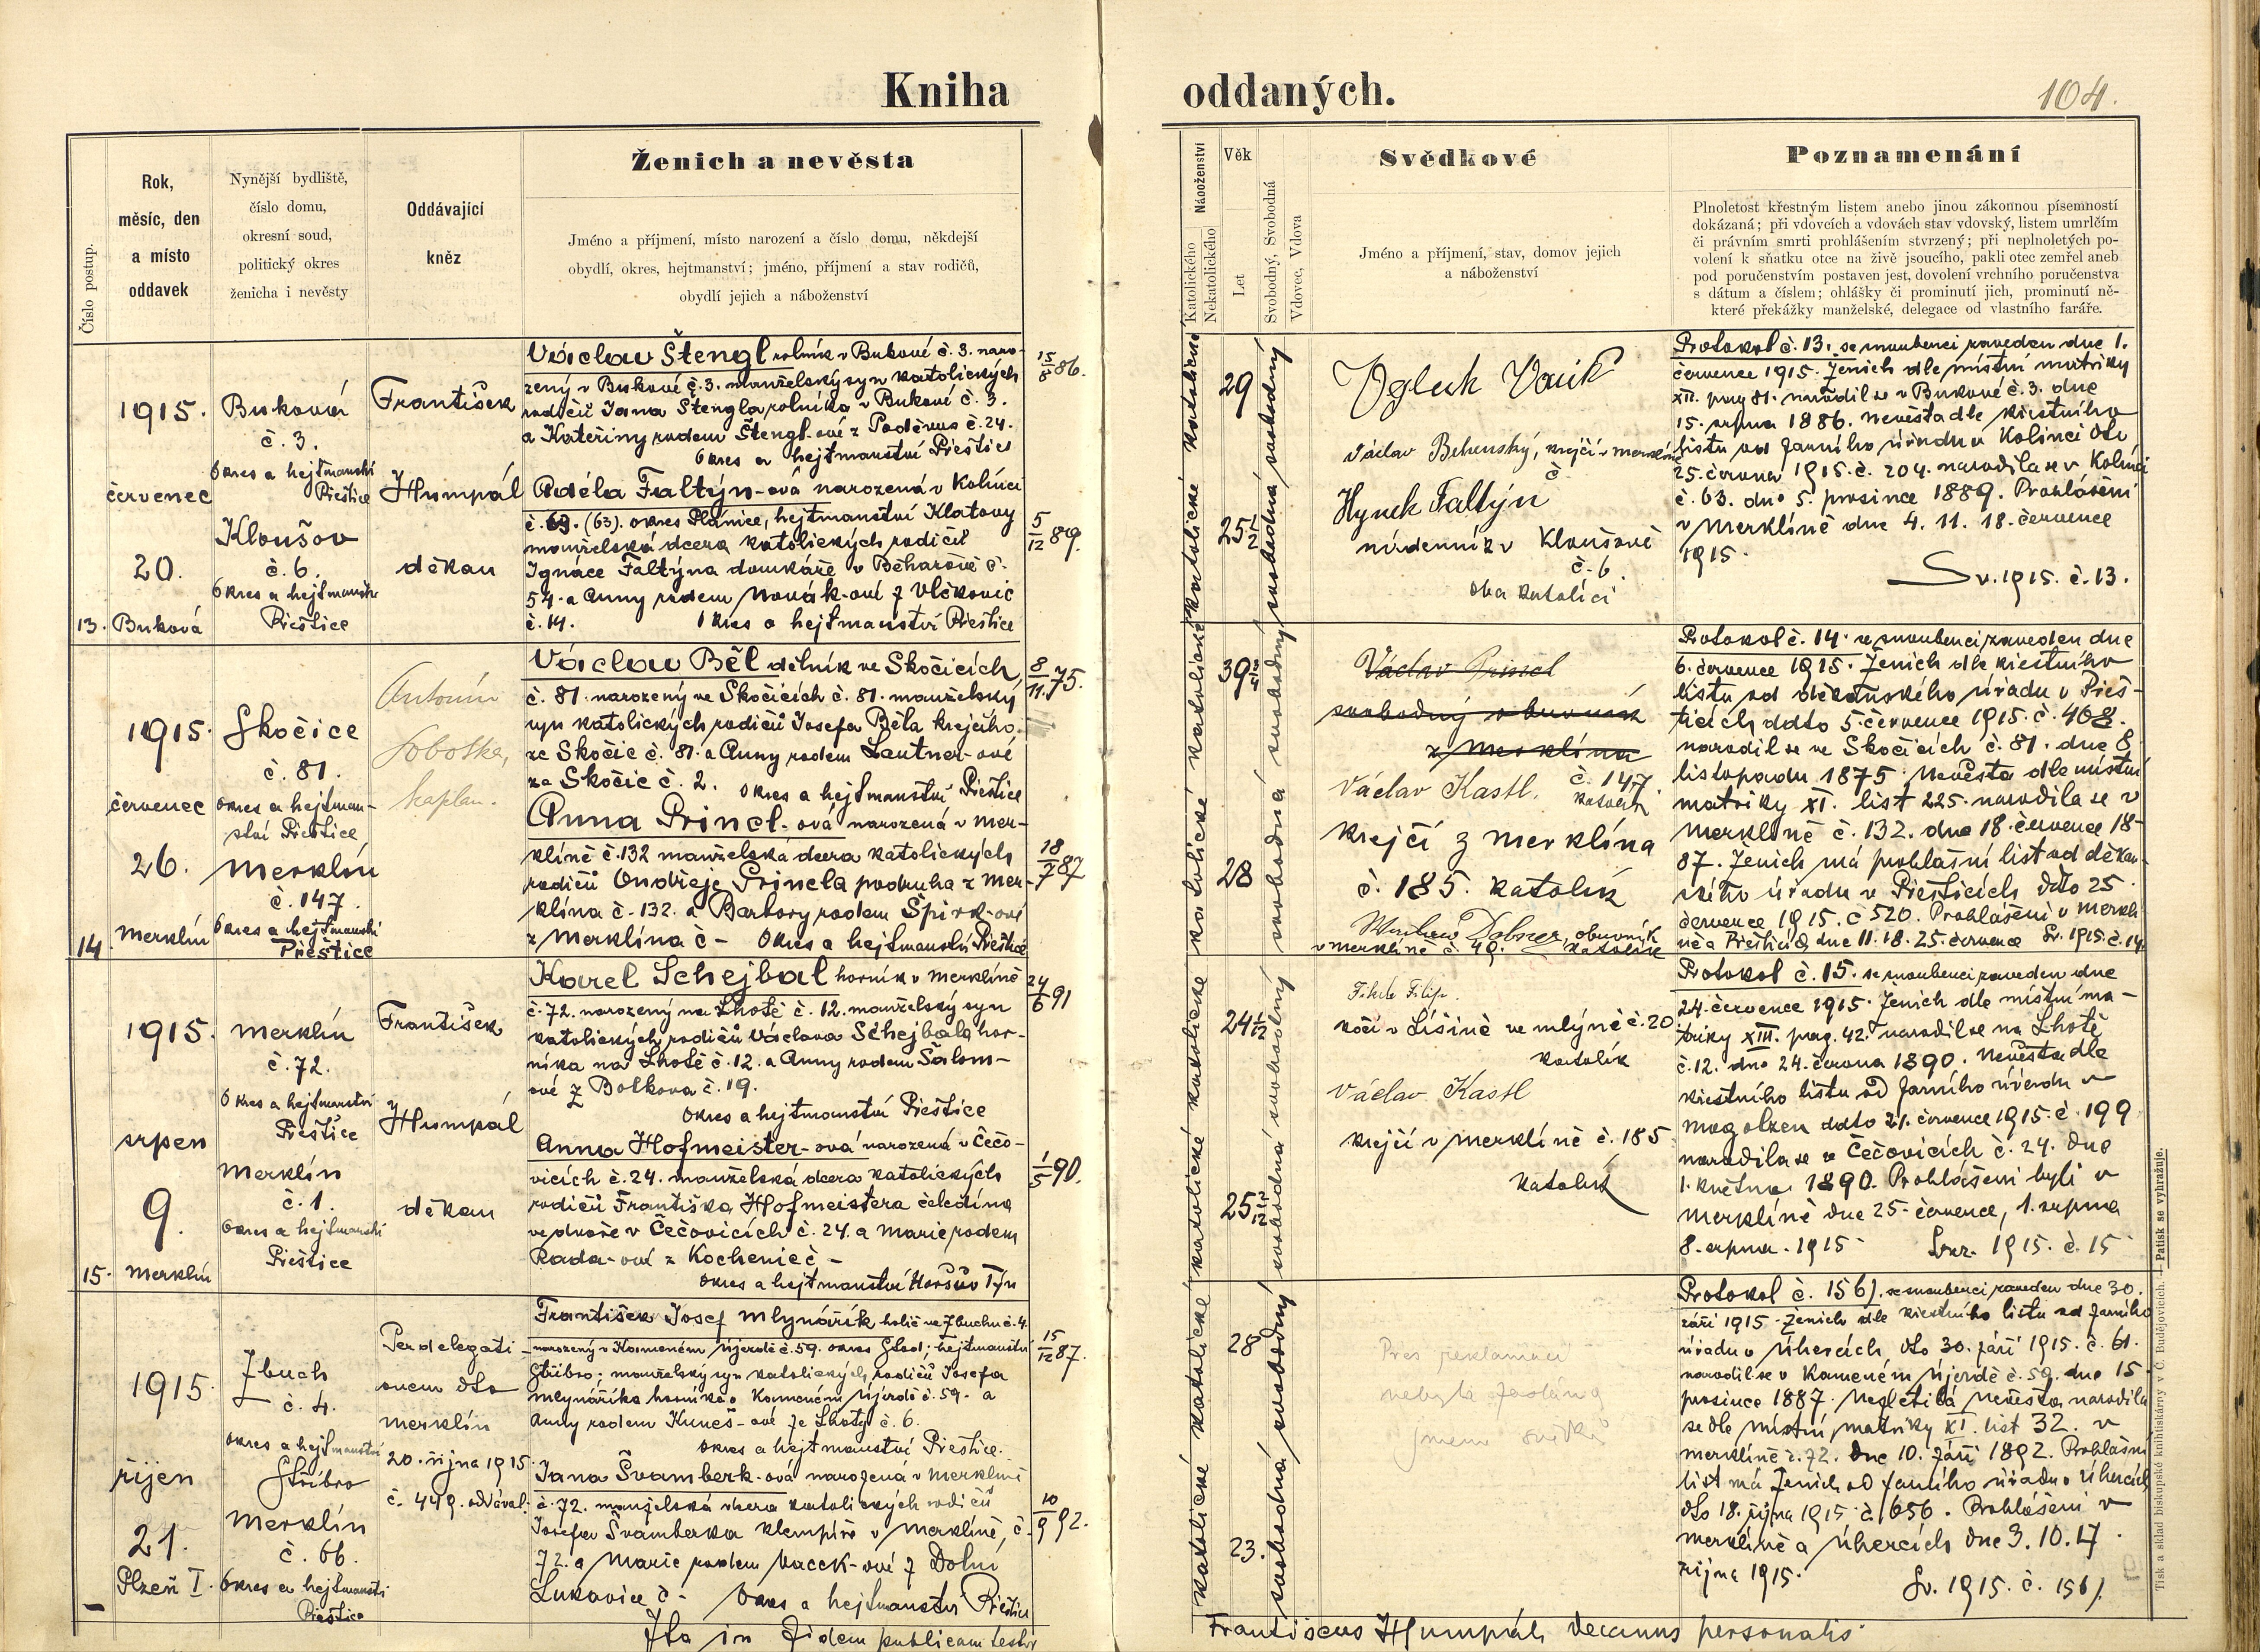 Kniha
oddaných.
104.
Číslo postup.
Rok,
měsíc, den
a místo
oddavek
Nynější bydliště,
číslo domu,
okresní soud,
politický okres
ženicha i nevěsty
Oddávající
kněz
Ženich a nevěsta
Jméno a příjmení, místo narození a číslo domu, někdejší
obydlí, okres, hejtmanství; jméno, příjmení a stav rodičů,
obydlí jejich a náboženství
Náboženství
Katolického
Nekatolického
Věk
Let
Svobodný, Svobodná
Vdovec, Vdova
Svědkové
Jméno a příjmení, stav, domov jejich
a náboženství
Poznamenání
Plnoletost křestným listem anebo jinou zákonnou písemností
dokázaná; při vdovcích a vdovách stav vdovský, listem umrlčím
či právním smrti prohlášením stvrzený; při neplnoletých po-
volení k sňatku otce na živě jsoucího, pakli otec zemřel aneb
pod poručenstvím postaven jest, dovolení vrchního poručenstva
s dátum a číslem; ohlášky či prominutí jich, prominutí ně-
které překážky manželské, delegace od vlastního faráře.
13.
1915.
červenec
20.
Buková
Buková
č. 3.
Okres a hejtmanství
Přeštice
Kloušov
č. 6.
Okres a hejtmanství
Přeštice
František
Humpál
děkan
Václav Štengl rolník v Bukové č. 3. naro-
zený v Bukové č. 3. manželský syn katolických
rodičů Jana Štengla rolníka v Bukové č. 3.
a Kateřiny rodem Štengl-ové z Poděvous č. 24.
Okres a hejtmanství Přeštice
15/8 86.
Adéla Faltýn-ová narozená v Kolinci
č. 63. (63). okres Plánice, hejtmanství Klatovy
manželská dcera katolických rodičů
Ignáce Faltýna domkáře v Běhařově č.
54. a Anny rodem Novák-ové z Vlčkovic
č. 14. Okres a hejtmanství Přeštice
5/12 89.
katolické katolické
29
25 1/2
svobodná svobodný
Václav Behenský, krejčí v Merklíně
č.
Hynek Faltýn
nádenník v Kloušově
č. 6
oba katolíci
Protokol č. 13. se snoubenci zaveden dne 1.
července 1915. Ženich dle místní matriky
XII. pag 81. narodil se v Bukové č. 3. dne
15. srpna 1886. Nevěsta dle křestního
listu od farního úřadu v Kolinci dto
25. června 1915. č. 204. narodila se v Kolinci
č. 63. dne 5. prosince 1889. Prohlášení
v Merklíně dne 4. 11. 18. července
1915.
Sv. 1915. č. 13.
14.
1915.
červenec
26.
Merklín
Skočice
č. 81.
Okres a hejtman-
ství Přeštice
Merklín
č. 147.
Okres a hejtmanství
Přeštice
Antonín
Sobotka,
kaplan.
Václav Běl dělník ve Skočicích,
č. 81. narozený ve Skočicích č. 81. manželský
syn katolických rodičů Josefa Běla krejčího
ze Skočic č. 81. a Anny rodem Lautner-ové
ze Skočic č. 2. Okres a hejtmanství Přeštice
8/11. 75.
Anna Princl-ová narozená v Mer-
klíně č. 132 manželská dcera katolických
rodičů Ondřeje Princla podruha z Mer-
klína č. 132. a Barbory rodem Špirk-ové
z Merklína č – Okres a hejtmanství Přeštice
18/7 87
katolické katolické
39
28
svobodná svobodný
Václav Princl
svobodný obuvník
z Merklína
č. 147
Václav Kastl. katolík
krejčí z Merklína
č. 185. katolík
Dobner, obuvník
v Merklíně č. 49. katolík
Protokol č. 14. se snoubenci zaveden dne
6. července 1915. Ženich dle křestního
listu od děkanského úřadu v Přeš-
ticích ddto 5. července 1915. č. 468.
narodil se ve Skočicích č. 81. dne 8.
listopadu 1875. Nevěsta dle místní
matriky XI. list 225. narodila se v
Merklíně č. 132. dne 18. července 18-
87. Ženich má prohlašní list od děkan-
ského úřadu v Přešticích ddto 25.
července 1915. č 520. Prohlášení v Merklí-
ně a Přešticích dne 11. 18. 25. července Sv. 1915. č. 14.
15.
1915.
srpen
9.
Merklín
Merklín
č. 72.
Okres a hejtmanství
Přeštice
Merklín
č. 1.
Okres a hejtmanství
Přeštice
František
Humpál
děkan
Karel Schejbal horník v Merklíně
č. 72. narozený na Lhotě č. 12. manželský syn
katolických rodičů Václava Schejbala hor-
níka na Lhotě č. 12. a Anny rodem Šalom-
ové z Bolkova č. 19.
Okres a hejtmanství Přeštice
24/6 91
Anna Hofmeister-ová narozená v Čečo-
vicích č. 24. manželská dcera katolických
rodičů Františka Hofmeistera čeledína
ve dvoře v Čečovicích č. 24. a Marie rodem
Rada-ové z Kochenic č –
Okres a hejtmanství Horšův Týn
1/5 90.
katolické katolické
24 1/12
25 2/12
svobodná svobodný
Filip.
kočí v Líšině ve mlýně č. 20
katolík
Václav Kastl
krejčí v Merklíně č. 185
katolík
Protokol č. 15. se snoubenci zaveden dne
24. července 1915. Ženich dle místní ma-
triky XIII. pag. 42. narodil se na Lhotě
č. 12. dne 24. června 1890. Nevěsta dle
křestního listu od farního úřadu v
Mogolzen ddto 21. července 1915. č. 199
narodila se v Čečovicích č. 24. dne
1. května 1890. Prohlášeni byli v
Merklíně dne 25. července, 1. srpna
8. srpna. 1915. Svaz. 1915. č. 15
–
1915.
říjen
21.
Plzeň I.
Zbuch
č. 4.
Okres a hejtmanství
Stříbro
Merklín
č. 66.
Okres a hejtmanství
Přeštice
Per delegati-
onem dto
Merklín
20. října 1915.
č. 449. oddával:
František Josef Mlynářík holič ve Zbuchu č. 4.
narozený v Kamenném Újezdě č. 59. okres Stod; hejtmanství
Stříbro; manželský syn katolických rodičů Josefa
Mlynáříka horníka v Kamenném Újezdě č. 59. a
Anny rodem Kuneš-ové ze Lhoty č. 6.
Okres a hejtmanství Přeštice.
15/12 87.
Jana Švamberk-ová narozená v Merklíně
č. 72. manželská dcera katolických rodičů
Josefa Švamberka klempíře v Merklíně, č.
72. a Marie rodem Vacek-ové z Dolní
Lukavice č – Okres a hejtmanství Přeštice
10/9 92.
katolické katolické
28
23.
svobodná svobodný
Přes reklamaci
nebyla zaslána
jmena svědků
Protokol č. 15b/. se snoubenci zaveden dne 30.
září 1915. Ženich dle křestního listu od farního
úřadu v Úhercích dto 30. září 1915. č. 61.
narodil se v Kameném Újezdě č. 59. dne 15.
prosince 1887. Nezletilá nevěsta narodila
se dle místní matriky XI. list 32. v
Merklíně č. 72. dne 10. září 1892. Prohlašní
list má ženich od farního úřadu v Úhercích
dto 18. října 1915. č. 656. Prohlášeni v
Merklíně a Úhercích dne 3. 10. 17
října 1915.
Sv. 1915. č. 15b/.
Ita in fidem publicam testor
Franciscus Humpál decanus personalis
Tisk a sklad biskupské knihtiskárny v Č. Budějovicích. — Patisk se vyhražuje.